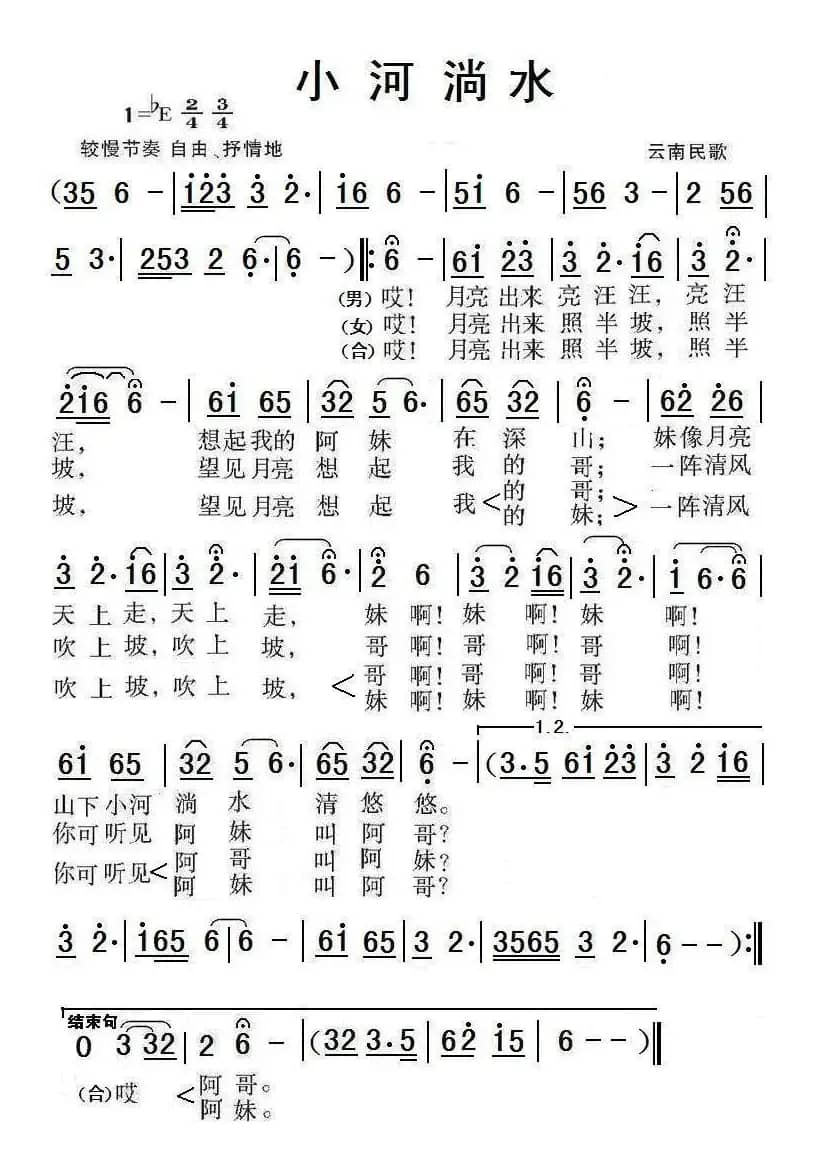 小河淌水
1=♭E 2/4 3/4
较慢节奏 自由、抒情地
云南民歌
(35 6 - | i̇2̇3̇ 3̇ 2̇· | i̇6 6 - | 5i̇ 6 - | 56 3 - | 2 56 |
5 3· | 253 2 6̣· | 6̣ - ) ‖: 6̇ - | 6i̇ 2̇3̇ | 3̇ 2̇· i̇6 | 3̇ 2̇· |
(男)哎! 月亮出来亮汪汪, 亮汪
(女)哎! 月亮出来照半坡, 照半
(合)哎! 月亮出来照半坡, 照半
2̇i̇6 6 - | 6i̇ 65 | 32 5 6· | 65 32 | 6̣ - | 62̇ 2̇6 |
汪, 想起我的阿妹在深山; 妹像月亮
坡, 望见月亮想起我的哥; 一阵清风
坡, 望见月亮想起我<的哥; 的妹;>一阵清风
3̇ 2̇· i̇6 | 3̇ 2̇· | 2̇i̇ 6· | 2̇ 6 | 3̇ 2̇ i̇6 | 3̇ 2̇· | i̇ 6·6 |
天上走,天上走, 妹啊! 妹啊! 妹啊!
吹上坡,吹上坡, 哥啊! 哥啊! 哥啊!
吹上坡,吹上坡, <哥啊! 哥啊! 哥啊!
妹啊! 妹啊! 妹啊!
1.2.
6i̇ 65 | 32 5 6· | 65 32 | 6̣ - | (3·5 6i̇ 2̇3̇ | 3̇ 2̇ i̇6 |
山下小河淌水清悠悠。
你可听见阿妹叫阿哥?
你可听见<阿哥叫阿妹?
阿妹叫阿哥?
3̇ 2̇· | i̇65 6 | 6 - | 6i̇ 65 | 3 2· | 3565 3 2· | 6̣ - - ) :‖
结束句
0 3 32 | 2 6 - | (32 3·5 | 62̇ i̇5 | 6 - - ) ‖
(合)哎 <阿哥。
阿妹。